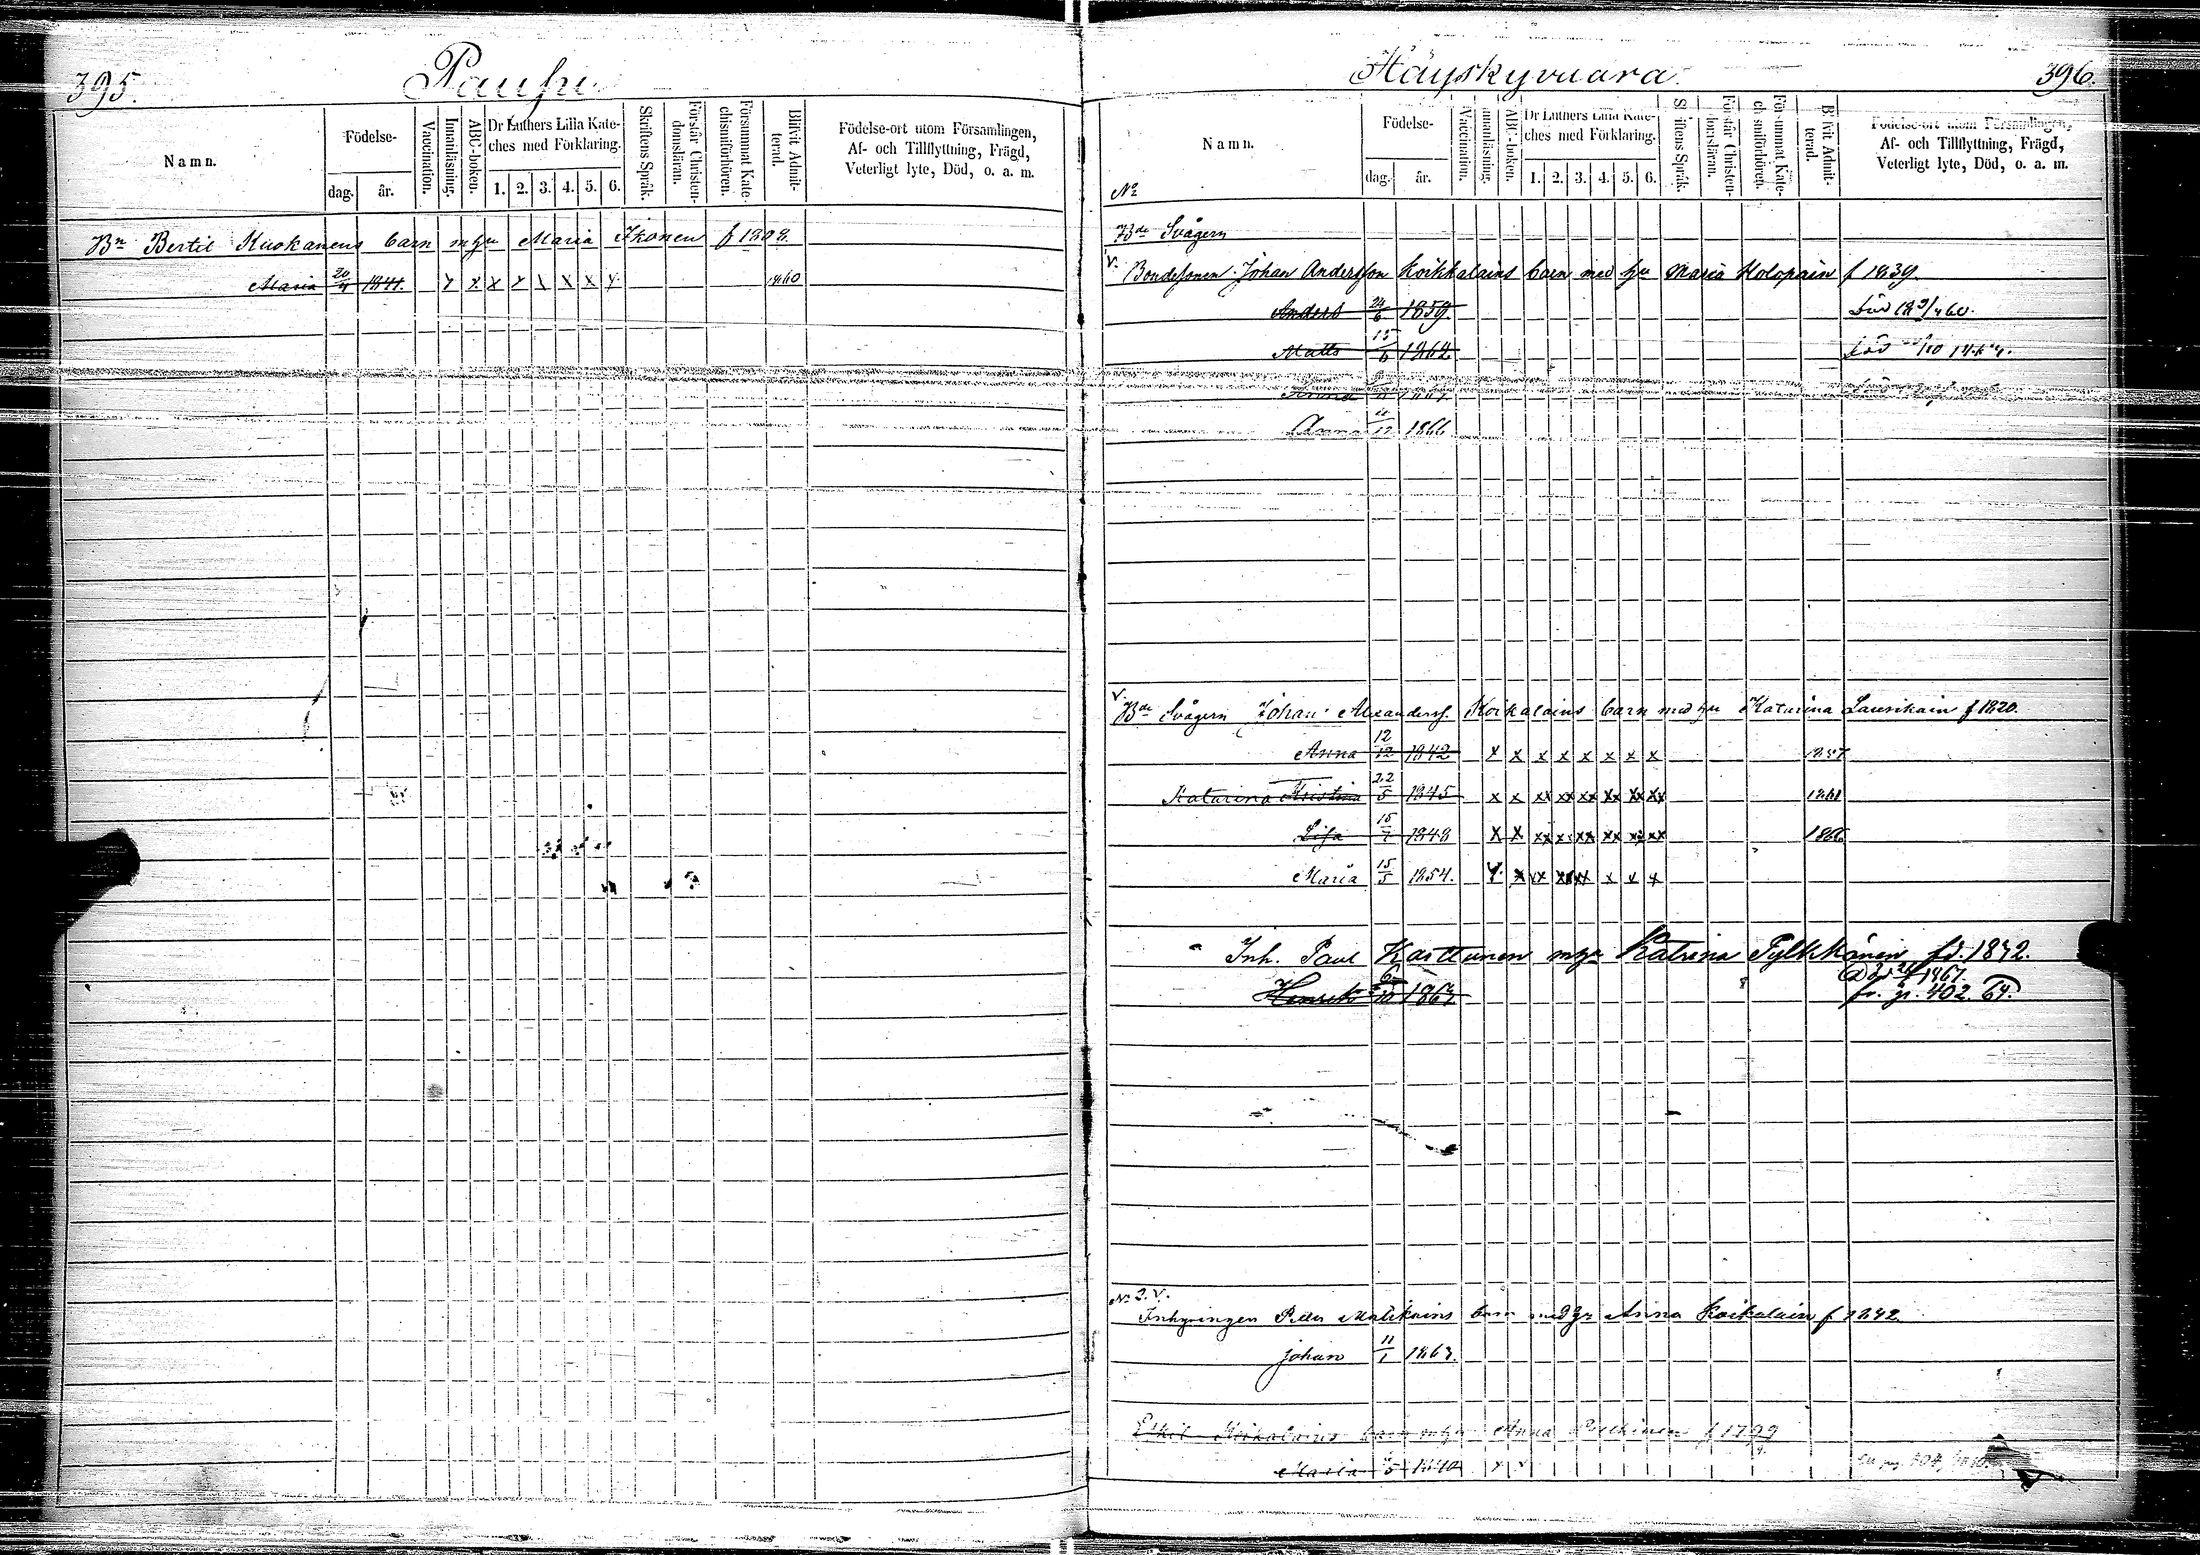 395.
Pausu
Namn.
Födelse-
dag.
år.
Vaccination.
Innanläsning.
ABC-boken.
Dr Luthers Lilla Kate-
ches med Förklaring.
1. 2. 3. 4. 5. 6.
Skriftens Språk.
Förstår Christen-
domsläran.
Försummat Kate-
chismiförhören.
Blifvit Admit-
terad.
Födelse-ort utom Församlingen,
Af- och Tillflyttning, Frägd,
Veterligt lyte, Död, o. a. m.
Bn Bertil Kuokanens barn m hu Maria Ikonen f 1808.
Maria 20/4 1841. x x x x x x x x 1860
Häyskyvaara.
396.
Namn.
Födelse-
dag.
år.
Vaccination.
Innanläsning.
ABC-boken.
Dr Luthers Lilla Kate-
ches med Förklaring.
1. 2. 3. 4. 5. 6.
Skriftens Språk.
Förstår Christen-
domsläran.
Försummat Kate-
chismiförhören.
Blifvit Admit-
terad.
Födelse-ort utom Församlingen,
Af- och Tillflyttning, Frägd,
Veterligt lyte, Död, o. a. m.
No
Bde Svågern
V. Bondesonen Johan Andersson Koikkalains barn med hu Maria Kolopain f 1839
Anders 24/6 1859.
Matts 15/6 1862
Anna
Anna /12 1866
V. Bde Svågern Johan Alexanderss. Koikalains barn med hu Katarina Laurikain f 1820.
Anna 12/12 1842 x x x x x x x x 1857
Katarina Kristina 22/5 1845 x x xx xx xx xx xx xx 1861
Lisa 15/7 1848 x x xx xx xx xx xx xx 1866
Maria 15/5 1854. x x xx xx xx x x x
Inh. Paul Karttunen m hu Katrina Pylkkänen fd. 1832.
Henrik 6/10 1863
Död 1867.
fr. p. 402. 64.
No 2. V.
Inhysingen Petter Matikains barn med hu Anna Koikalain f 1842
Johan 11/1 1863.
Eskil Koikalains barn m hu Anna f 1799
Maria /5 1840 x x